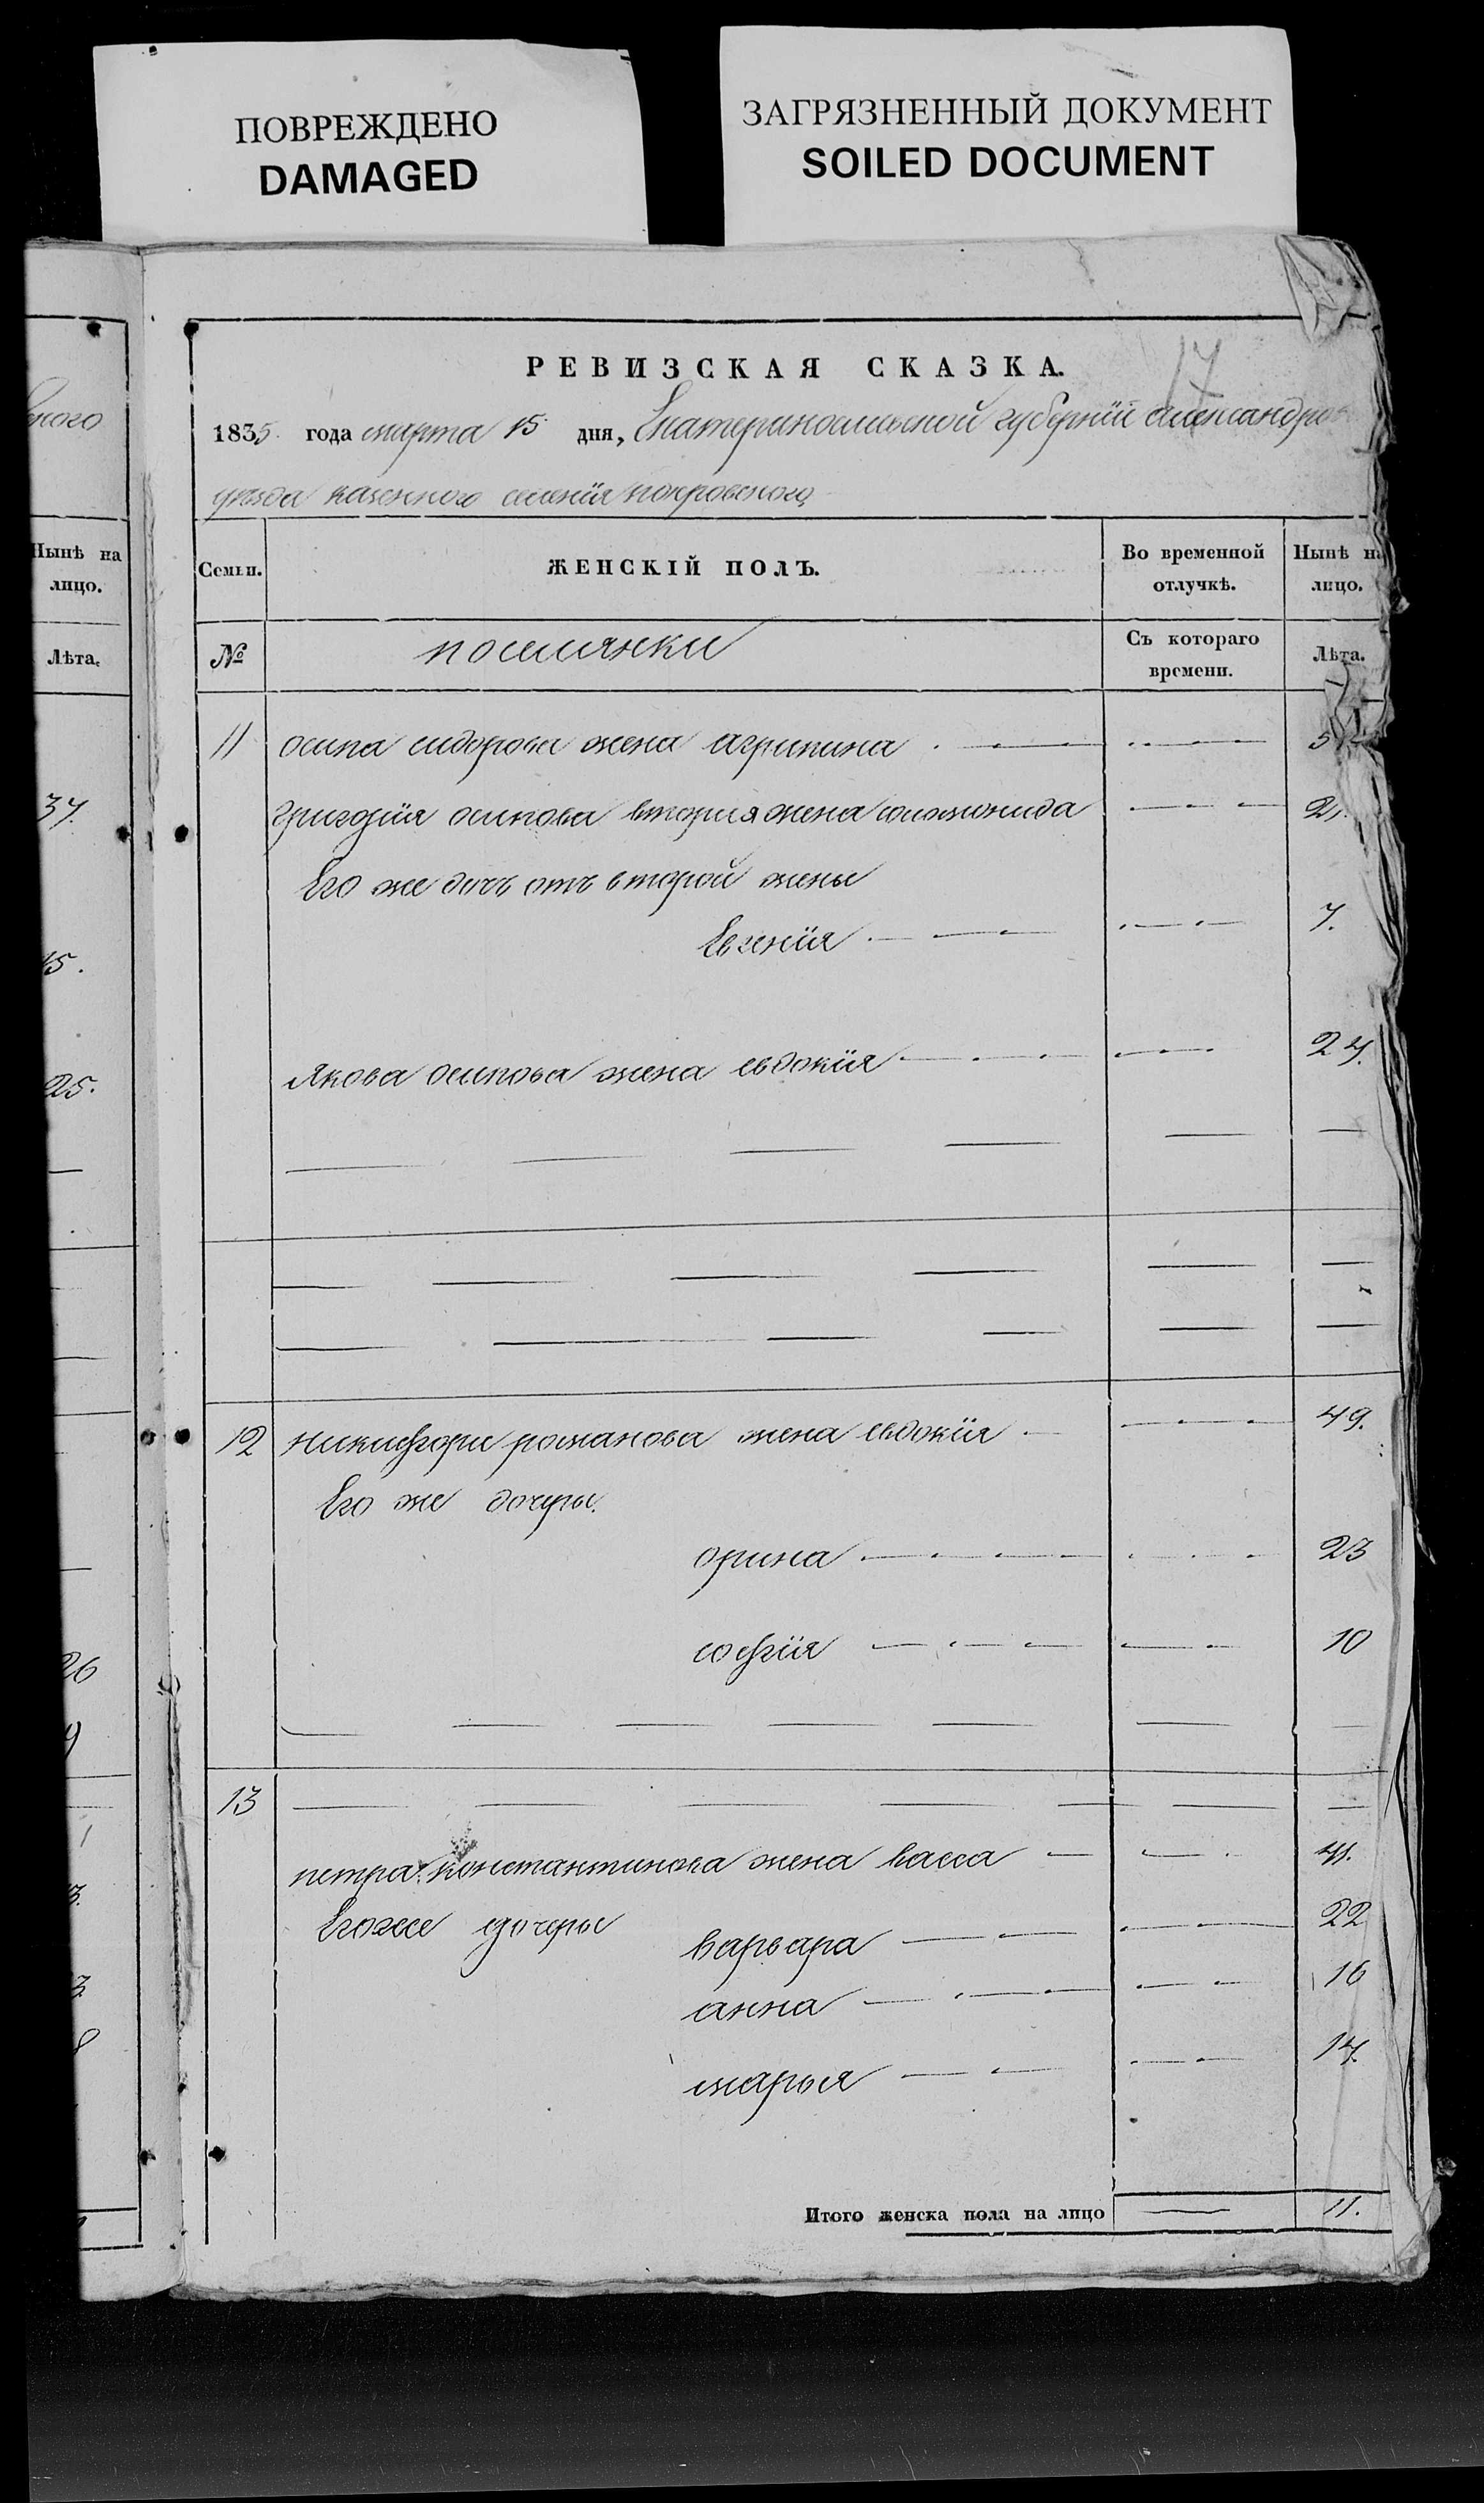 ПОВРЕЖДЕНО
DAMAGED
ЗАГРЯЗНЕННЫЙ ДОКУМЕНТ
SOILED DOCUMENT
РЕВИЗСКАЯ СКАЗКА.
17
1835 года марта 15 дня, Екатеринославской губернїи александров
уѣзда казенного селенїя покровского
Нынѣ на
лицо.
Лѣта.
Семьи.
ЖЕНСКІЙ ПОЛЪ.
Во временной
отлучкѣ.
Нынѣ на
лицо.
№
поселянки
Съ котораго
времени.
Лѣта.
11 осипа сидорова жена агрипина
григорїя осипова вторая жена соломонида 21.
Его же дочь отъ второй жены
Евгенїя 7.
Якова осипова жена евдокїя 24.
12 никифора романова жена евдокїя 49.
Его же дочеры
орина 23
софїя 10
13
петра константинова жена васса 41.
Егоже дочеры
варвара 22
анна 16
марья 14.
Итого женска пола на лицо 11.
37.
15.
25.
26
9